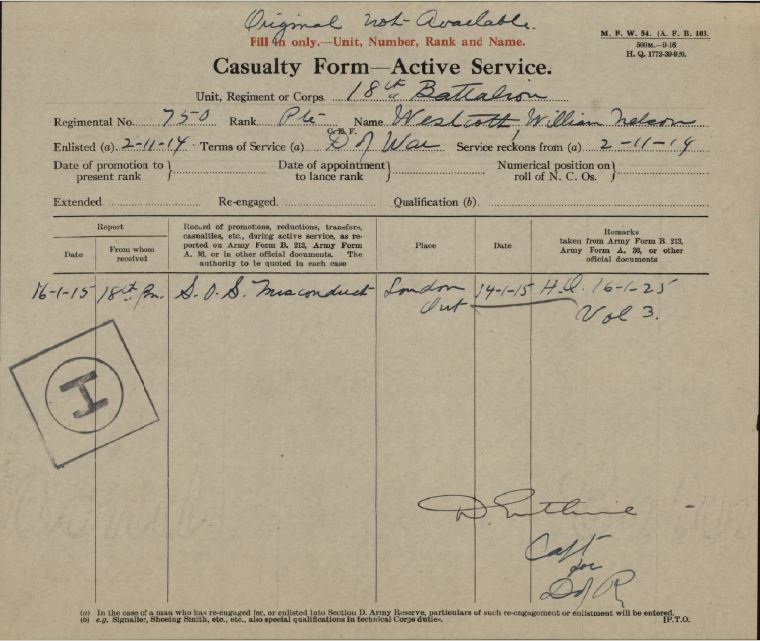 Original not Available.
Fill in only.—Unit, Number, Rank and Name.
M. F. W. 54. (A. F. B. 103.
500M.—9-16
H. Q. 1772-39-920.
Casualty Form—Active Service.
Unit, Regiment or Corps 18th Battalion
Regimental No. 750 Rank Pte Name Westcott, William Nelson
C. E. F.
Enlisted (a) 2-11-14 Terms of Service (a) D of War Service reckons from (a) 2-11-14
Date of promotion to present rank } Date of appointment to lance rank } Numerical position on roll of N. C. Os. }
Extended Re-engaged Qualification (b)
Report
Date
From whom received
Record of promotions, reductions, transfers, casualties, etc., during active service, as reported on Army Form B. 213, Army Form A. 36, or in other official documents. The authority to be quoted in each case
Place
Date
Remarks
taken from Army Form B. 213, Army Form A. 36, or other official documents
16-1-15 18th Bn. S. O. S. Misconduct London 14-1-15 H.Q. 16-1-25
Ont Vol 3.
H
Capt
for
D of R
(a) In the case of a man who has re-engaged for, or enlisted into Section D. Army Reserve, particulars of such re-engagement or enlistment will be entered.
(b) e.g. Signaller, Shoeing Smith, etc., etc., also special qualifications in technical Corps duties.
[P.T.O.